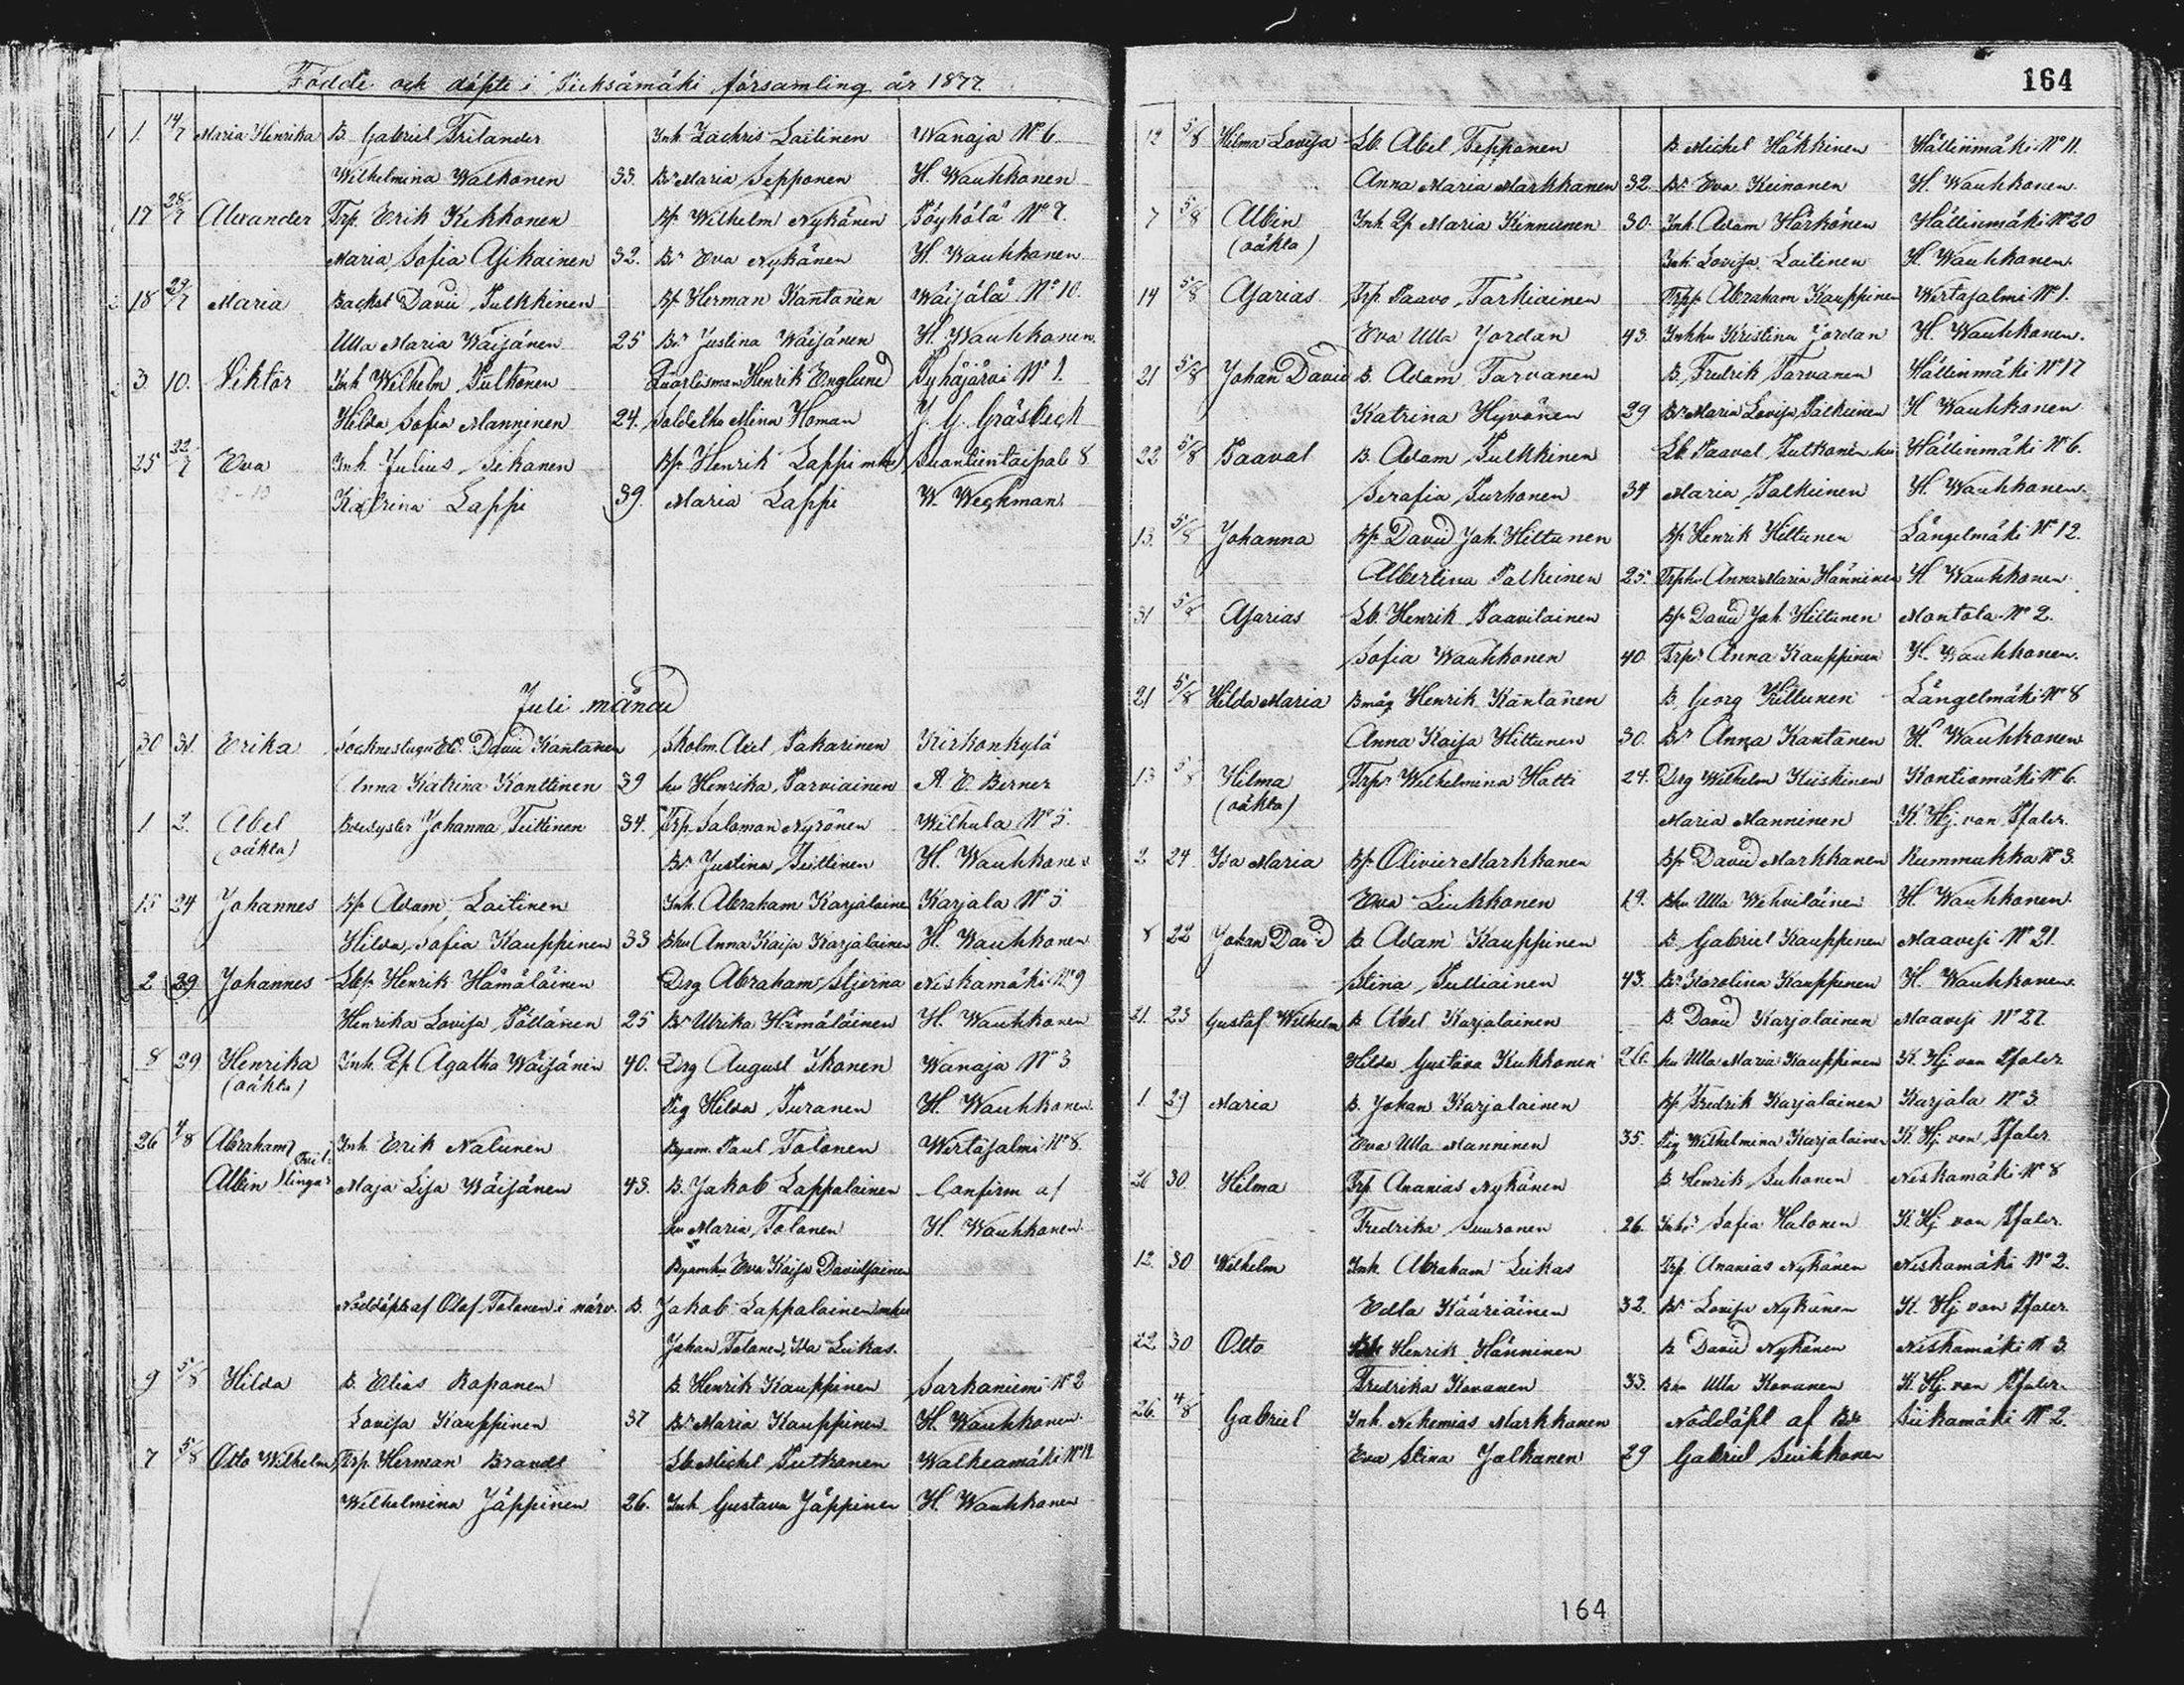 Födde och döpte i Pieksämäki församling år 1877.
1. 14/7 Maria Henrika B. Gabriel Frilander Inh. Zachris Laitinen Wanaja No 6.
Wilhelmina Walkonen 33. Br Maria Sepponen H. Wauhkonen
17 28/7 Alexander Trp. Erik Kekkonen Bp. Wilhelm Nykänen Pöyhölä No 7.
Maria Sofia Asikainen 32. Br Eva Nykänen H. Wauhkonen
18 29/7 Maria Backst. David Pulkkinen Bp. Herman Kantanen Wäisälä No 10.
Ulla Maria Wäisänen 25 Br Justina Wäisänen H. Wauhkonen.
3. 10. Viktor Inh. Wilhelm Pulkonen Henrik Englund Pyhäjärvi No 1.
Hilda Sofia Manninen 24. Mina Homan J. G. Gråsbeck
25 22/7 Eva Inh. Julius Sikanen Bp. Henrik Lappi mhu Suontientaipale 8
Katrina Lappi 39. Maria Lappi W. Weckman.
Juli månad
30 31. Erika David Kantanen Skolm. Axel Pakarinen Kirkonkylä
Anna Katrina Konttinen 39 hu Henrika Parviainen A. E. Birner
1 2. Abel Johanna Tiittinen 34. Trp. Salomon Nyrönen Wilhula No 5.
(oäkta) Br Justina Tiittinen H. Wauhkonen
15 24 Johannes Bp. Adam Laitinen Inh. Abraham Karjalainen Karjala No 5
Hilda Sofia Kauppinen 33 Bhu Anna Kaisa Karjalainen H. Wauhkonen
2 29 Johannes Lbp. Henrik Hämäläinen Drg Abraham Stjerna Niskamäki No 9
Henrika Lovisa Pöllänen 25 Br Ulrika Hämäläinen H. Wauhkonen
8 29 Henrika Inh. Qp Agatha Wäisänen 40. Drg August Ikonen Wanaja No 3
(oäkta) Pig Hilda Turanen H. Wauhkonen.
26 4/8 Abraham Inh. Erik Nalunen Byam. Paul Tolonen Wertasalmi No 8.
Albin Tvillingar Maja Lisa Wäisänen 43. B. Jakob Lappalainen Confirm af
hu Maria Tolonen H. Wauhkonen
Byamhu Eva Kaisa Davidsainen
Nöddöpte af Olof Tolonen i närv. B. Jakob Lappalainen mhu
Johan Tolonen, Ida Liikas.
9 5/8 Hilda B. Elias Raponen B. Henrik Kauppinen Sarkaniemi No 2
Lovisa Kauppinen 37 Br Maria Kauppinen H. Wauhkonen.
7 5/8 Otto Wilhelm Trp. Herman Brandt Lb Michel Putkonen Walkeamäki No 12
Wilhelmina Jäppinen 26. Inh. Gustava Jäppinen H. Wauhkonen
164
12 5/8 Hilma Lovisa Lb. Abel Tepponen B. Michel Häkkinen Hällinmäki No 11.
Anna Maria Markkanen 32. Br. Eva Keinonen H. Wauhkonen.
7 5/8 Albin Inh. Qp Maria Kinnunen 30. Inh. Adam Härkönen Hällinmäki No 20
(oäkta) Inh. Lovisa Laitinen H. Wauhkonen.
14 5/8 Asarias Trp. Paavo Tarkiainen Trpp. Abraham Kauppinen Wertasalmi No 1.
Eva Ulla Jordan 43. Inhhu Kristina Jordan H. Wauhkonen.
21 5/8 Johan David B. Adam Tarvanen B. Fredrik Tarvanen Hällinmäki No 17
Katrina Hyvönen 29 Br Maria Lovisa Pulkkinen H Wauhkonen
22 5/8 Paaval B. Adam Pulkkinen Lb. Paaval Putkonen hu Hällinmäki No 6.
Serafia Purhonen 34 Maria Palkeinen H. Wauhkonen.
13. 5/8 Johanna Bp. David Joh. Hiltunen Bp Henrik Hiltunen Längelmäki No 12.
Albertina Palkeinen 25. Trphu Anna Maria Hänninen H Wauhkonen.
31 5/8 Asarias Lb. Henrik Paavilainen Bp. David Joh. Hiltunen Montola No 2.
Sofia Wauhkonen 40. Trpr Anna Kauppinen H. Wauhkonen.
21 5/8 Hilda Maria Bmåg Henrik Kantanen B. Georg Hiltunen Längelmäki No 8
Anna Kaisa Hiltunen 30. Br Anna Kantanen H. Wauhkonen
13 5/8 Hilma Trpr Wilhelmina Hatti 24. Drg Wilhelm Kiiskinen Kontiomäki No 6.
(oäkta) Maria Manninen K. Hj. von Pfaler.
2 24. Ida Maria Bp. Olivier Markkanen Bp. David Markkanen Rummukka No 3.
Eva Liukkonen 19. Bhu Ulla Wehviläinen H. Wauhkonen.
8 22 Johan David B. Adam Kauppinen B. Gabriel Kauppinen Maavesi No 21.
Stina Pulliainen 43. Br Karolina Kauppinen H. Wauhkonen.
21. 23 Gustaf Wilhelm B. Abel Karjalainen B. David Karjalainen Maavesi No 27.
Hilda Gustava Kukkonen 26. hu Ulla Maria Kauppinen K. Hj von Pfaler
1. 29 Maria B. Johan Karjalainen Bp Fredrik Karjalainen Karjala No 3.
Eva Ulla Manninen 35. Pig Wilhelmina Karjalainen K. Hj. von Pfaler
26 30. Hilma Trp. Ananias Nykänen B Henrik Suhonen Niskamäki No 8
Fredrika Suuronen 26. Sofia Halonen K. Hj. von Pfaler.
12. 30 Wilhelm Inh. Abraham Liikas Trp. Ananias Nykänen Niskamäki No 2.
Edla Kääriäinen 32. Br Lovisa Nykänen K. Hj von Pfaler.
22. 30 Otto Henrik Hänninen B. David Nykänen Niskamäki No 3.
Fredrika Kovanen 33. Bhu Ulla Kovanen K. Hj. von Pfaler.
26. 4/8 Gabriel Inh. Nehemias Markkanen Nöddöpt af Siikamäki No 2.
Eva Stina Jalkanen 29 Gabriel Siikkonen
164